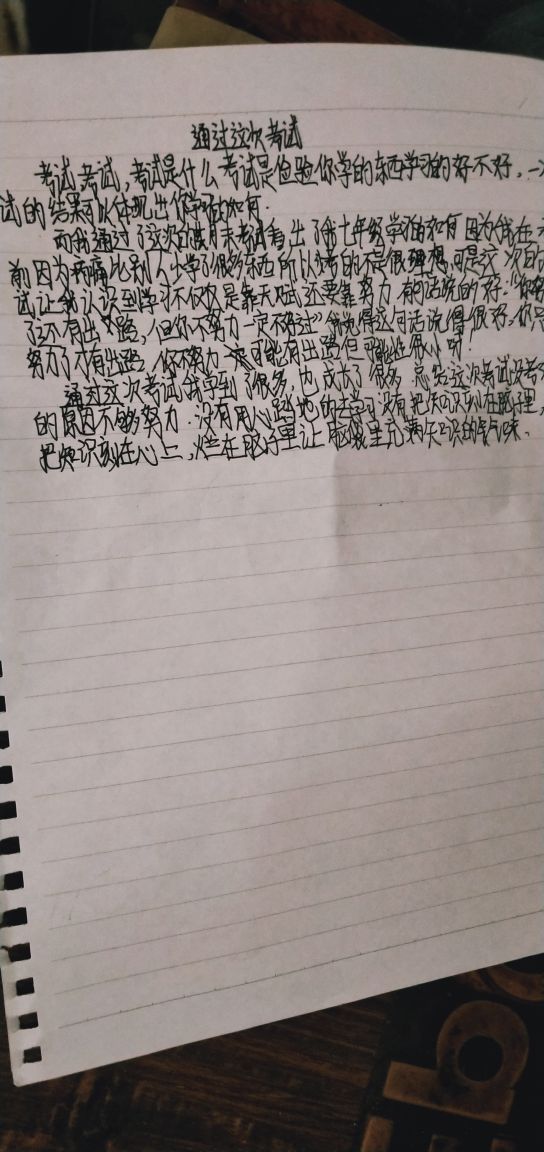 通过这次考试
考试考试,考试是什么考试是检验你学的东西学习的好不好,一
试的结果可以体现出你学的如何.
而我通过了这次的期末考试看出了我七年级学的如何因为我在
前因为病痛比别人少学了很多东西所以考的不是很理想,可是这次的
试让我认识到学习不仅仅是靠天赋还要靠努力有句话说的好:"你努
了还有出路,但你不努力一定不好过"我觉得这句话说得很好,你
努力了才有出路,你不努力可能有出路但可能性很小呀
通过这次考试我学到了很多,也成长了很多总结这次考试没考
的原因不够努力.没有用心踏地的去学习没有把知识刻在脑子里,
把知识刻在心上,烂在脑子里让脑袋里充满知识的气味.